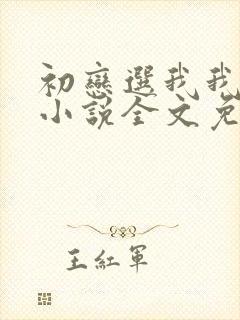 初戀選我我
小說全文免
王紅軍